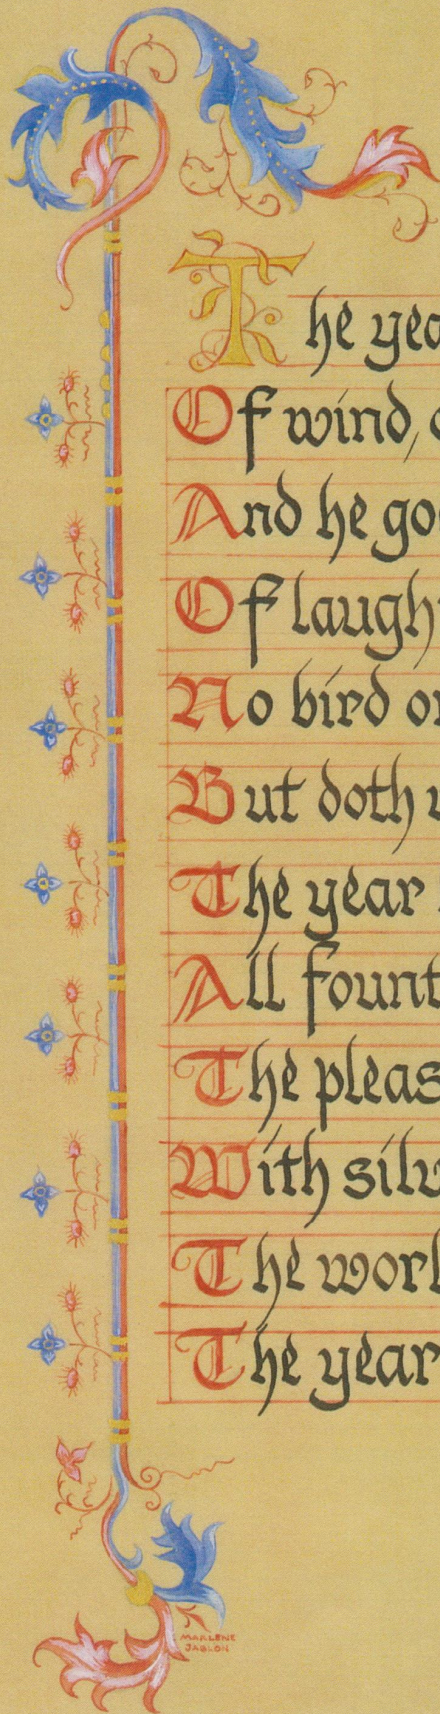 The yea
Of wind, c
And he go
Of laugh
No bird or
But doth
The year
All fount
The pleas
With silv
The worl
The year
MARLENE
JABLON